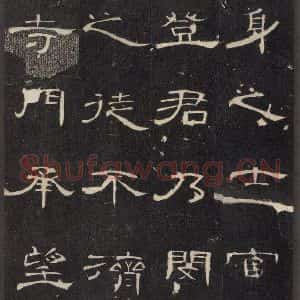 身之士官
登君乃閔
之徒不濟
寺門承望
Shufawang.CN